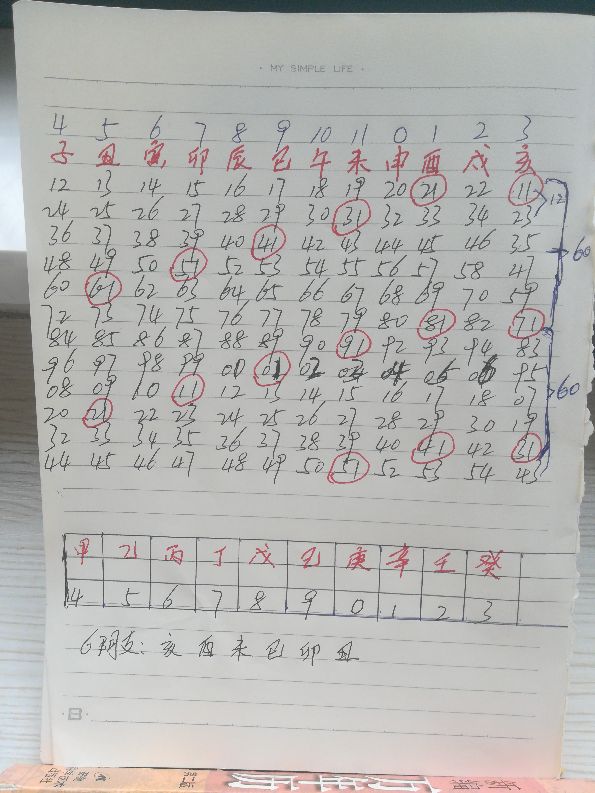 · MY SIMPLE LIFE ·
4 5 6 7 8 9 10 11 0 1 2 3
子 丑 寅 卯 辰 巳 午 未 申 酉 戌 亥
12 13 14 15 16 17 18 19 20 21 22 11
24 25 26 27 28 29 30 31 32 33 34 23 12
36 37 38 39 40 41 42 43 44 45 46 35 60
48 49 50 51 52 53 54 55 56 57 58 47
60 61 62 63 64 65 66 67 68 69 70 59
72 73 74 75 76 77 78 79 80 81 82 71
84 85 86 87 88 89 90 91 92 93 94 83
96 97 98 99 00 01 02 03 04 05 06 95
08 09 10 11 12 13 14 15 16 17 18 07 60
20 21 22 23 24 25 26 27 28 29 30 19
32 33 34 35 36 37 38 39 40 41 42 31
44 45 46 47 48 49 50 51 52 53 54 43
甲 乙 丙 丁 戊 己 庚 辛 壬 癸
4 5 6 7 8 9 0 1 2 3
6阴支: 亥 酉 未 巳 卯 丑
B